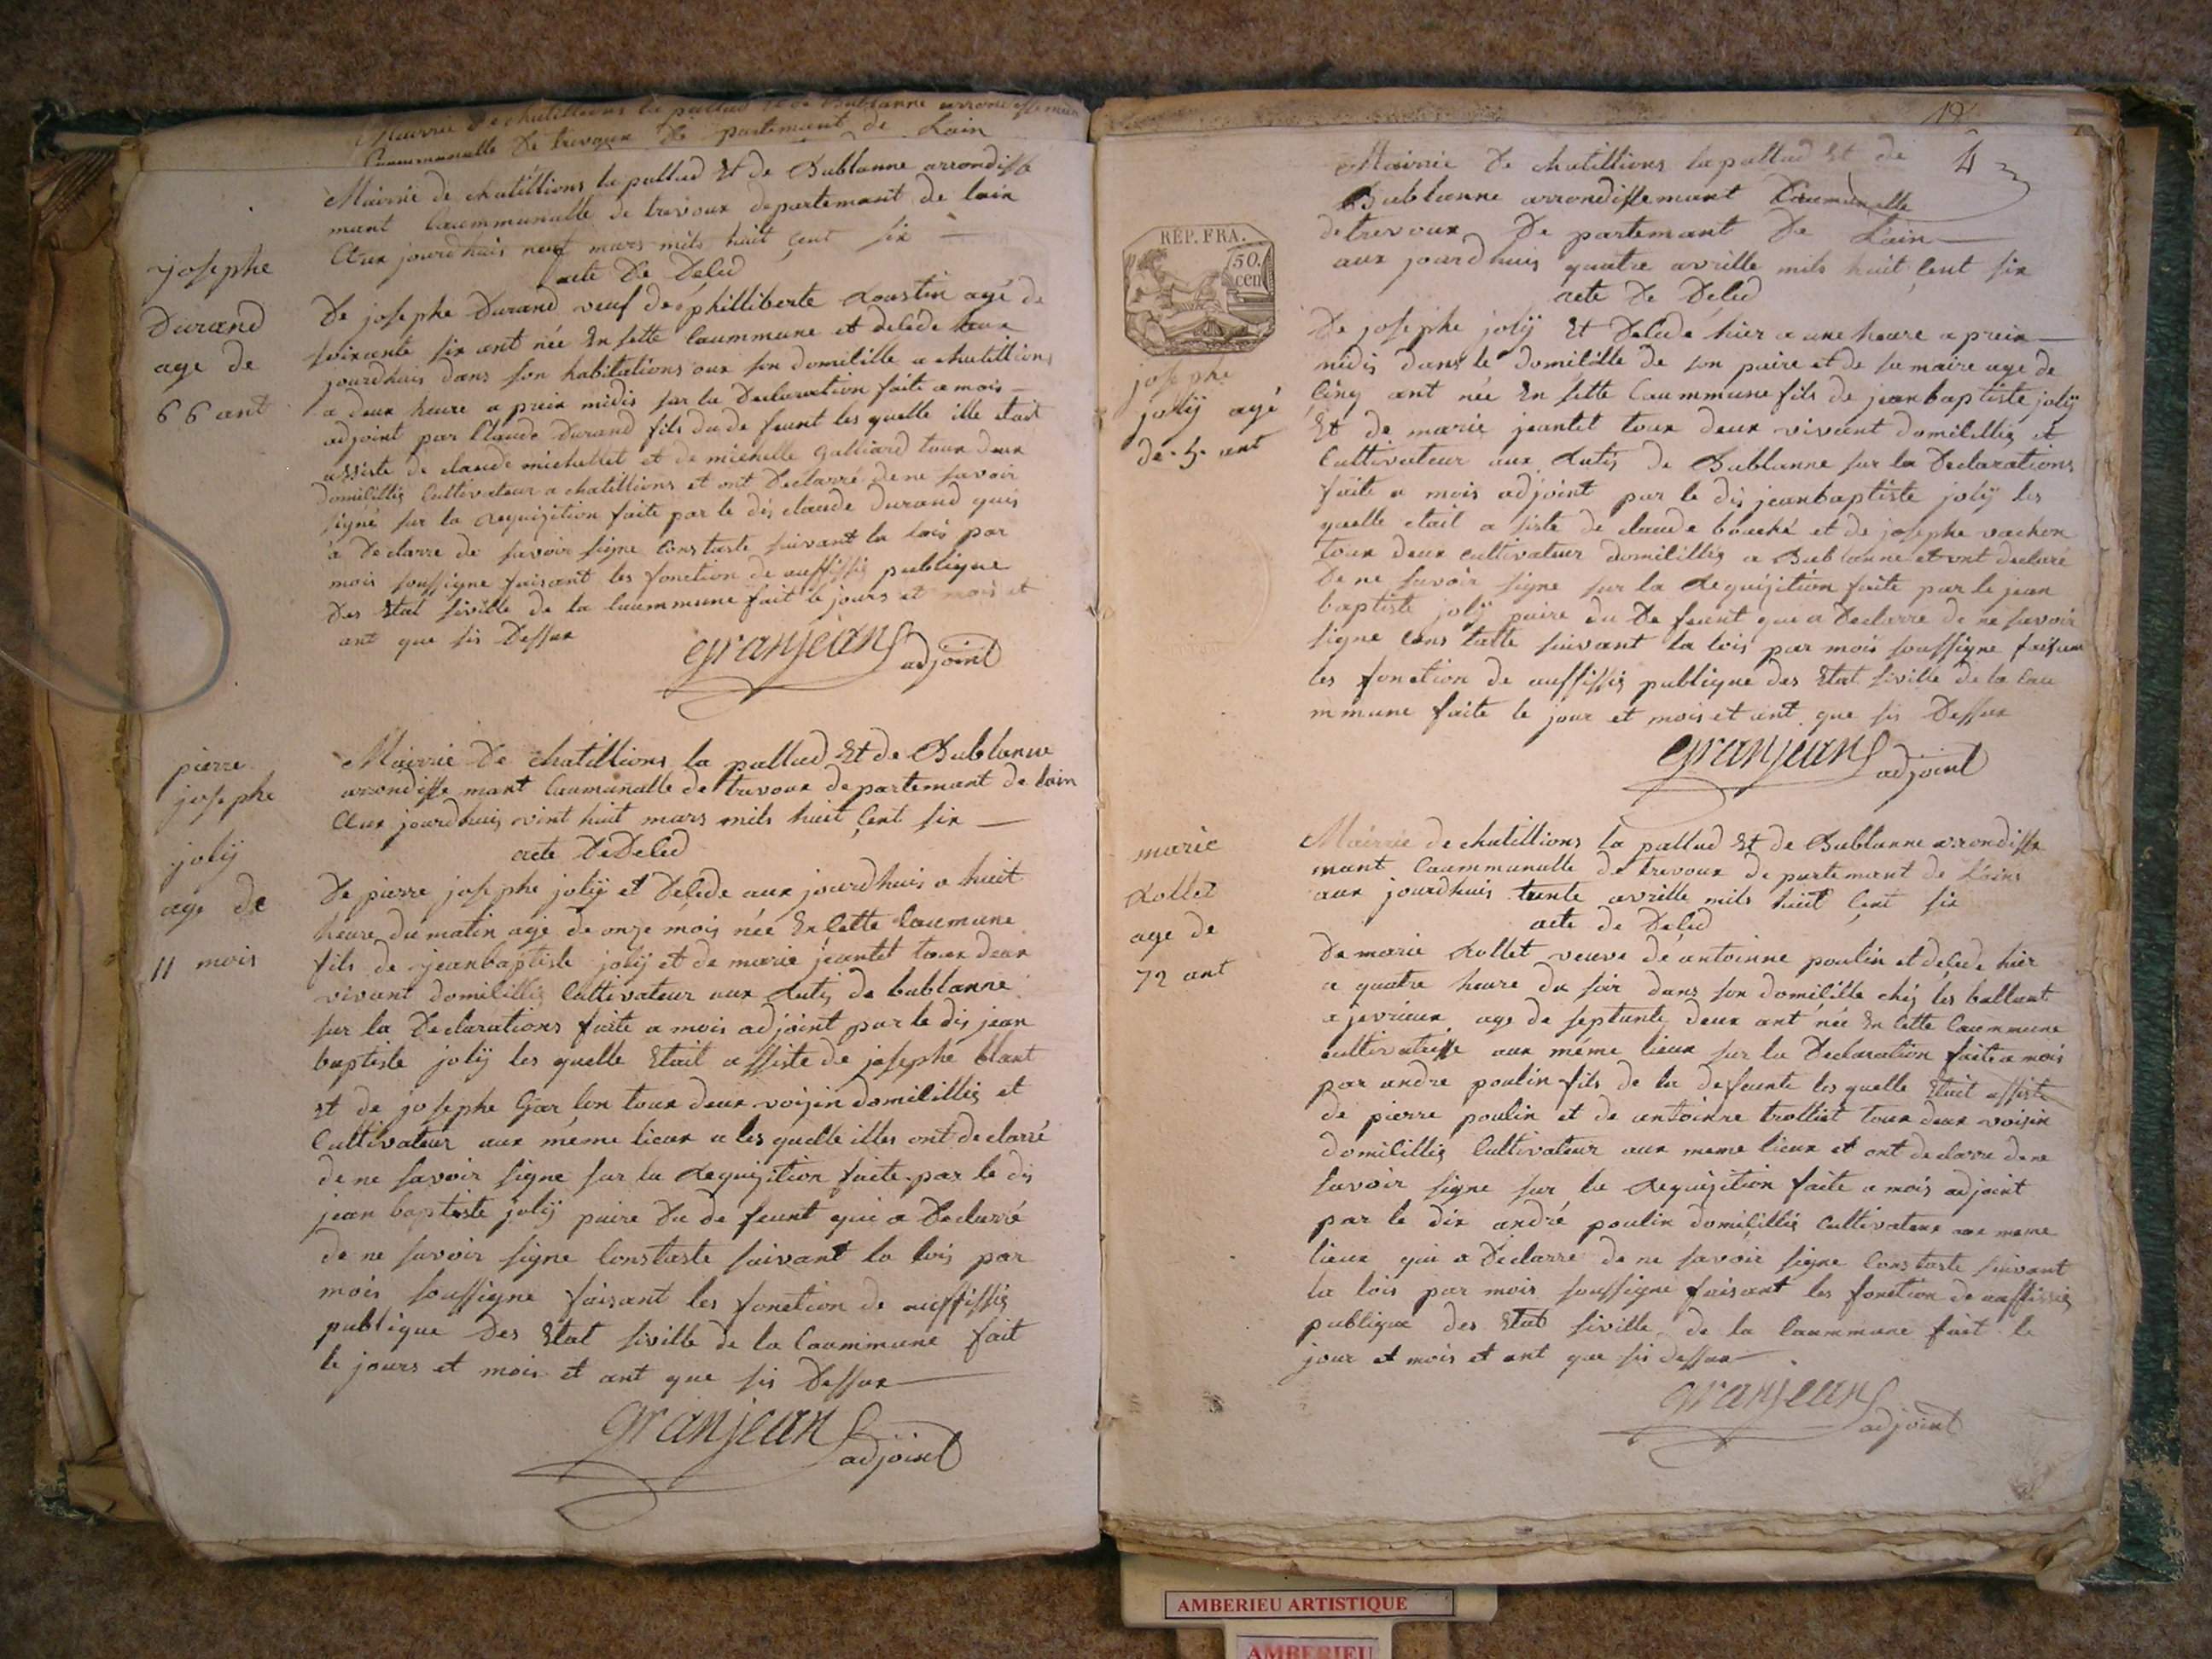 Mairie de chatillions la pallud et de Bublanne arrondissemen
Caummunalle De trevoux De partemant de Lain
Mairie de chatillions la pallud Et de Bublanne arrondisse
mant Caummunalle de trevoux departemant de lain
Aux jourdhuis neuf mars mils huit Cent six
acte De Deled
josephe
Durand
age de
66 ant
De josephe Durand veuf de philliberte Loustin agé de
soixante six ant née En sette Caummune et deledé haux
jourdhuis dans son habitations aux son domilille a chatillions
a deux heure a preix midis sur la Declaration faite a mois
adjoint par Claude Durand fils du de feunt les quelle ille etait
assiste de claude michellet et de michelle galliard toux deux
domilillis Cultivateur a chatillions et ont Declarré de ne savoir
signé sur la Requizition faite par le dis claude durand quis
a Declarre de savoir signe Constaste suivant la lois par
mois soussigne faisant les fonction de auffissis publique
Des Etat siville de la Caummune fait le jours et mois et
ant que sis Dessux
granjean adjoint
pierre
josephe
jolÿ
age de
11 mois
Mairie De chatillions la pallud Et de Bublanne
arrondisse mant Caumunalle de trevoux departemant de lain
Aux jourdhuis vint huit mars mils huit Cent six
acte De Deled
De pierre josephe jolÿ et Delede aux jourdhuis a huit
heure du matin agé de onze mois née En Cette Caumune
fils de jeanbaptiste jolÿ et de marie jeantet toux deux
vivant domilillis Cultivateur aux Lutis de bublanne
sur la Declarations faite a mois adjoint par le dis jean
baptiste jolÿ les quelle Etait assiste de josephe blant
et de josephe Garlon toux deux voizin domilillis et
Cultivateur aux même lieux a les quelle illes ont declarré
de ne savoir signe sur la Requizition faite par le dis
jean baptiste jolÿ paire Du de feunt qui a Declarré
de ne savoir signe Constaste suivant la lois par
mois soussigne faisant les fonction de auffissis
publique Des Etat siville de la Caummune fait
le jours et mois et ant que sis Dessux
granjean adjoint
4
Mairie De chatillions la pallud Et de
Bublanne arrondissemant Caumunalle
de trevoux De partemant De Lain
aux jourdhuis quatre avrille mils huit Cent six
acte De Deled
RÉP. FRA.
50.
cen
josephe
jolÿ agé
de 5 ant
De josephe jolÿ Et Deledé hier a une heure a preix
midis dans le domilille de son paire et de sa maire age de
Cinq ant née En sette Caummune fils de jeanbaptiste jolÿ
Et de marie jeantet toux deux vivant domilillis et
Cultivateur aux Lutis de Bublanne sur la Declarations
faite a mois adjoint par le dis jeanbaptiste jolÿ les
quelle etait a siste de claude bouché et de josephe vachon
toux deux cultivateur domilillis a Bublanne et ont declaré
De ne savoir signe sur la Requizition faite par le jean
baptiste jolÿ paire du De feunt que a Declarre de ne savoir
signe Cons taste suivant la lois par mois soussigne faisant
les fonction de auffissis publique des Etat siville de la Cau
mmune faite le jour et mois et ant que sis Dessux
granjean adjoint
marie
Rollet
age de
72 ant
Mairie de chatillions la pallud Et de Bublanne arrondisse
mant Caummunalle de trevoux de partemant de Lains
aux jourdhuis trente avrille mils huit Cent six
acte de Deled
De marie Rollet veuve de antoinne poulin et delede hier
a quatre heure du soir dans son domilille chés les ballant
a jevrieux age de septante deux ant née En Cette Caummune
cultivatrisse aux même lieux sur la Declaration faite a mois
par andre poulin fils de la defeunte les quelle Etait assiste
de pierre poulin et de antoinne trolliet toux deux voisin
domilillis Cultivateur aux meme lieux et ont declarre de ne
savoir signe sur la Requizition faite a mois adjoint
par le dix andré poulin domilillis Cultivateur aux meme
lieux qui a Declarre de ne savoir signe Constaste suivant
la lois par mois soussigne faisant les fonction de auffissis
publique des Etat siville de la Caummune fait le
jour et mois et ant que sis dessux
granjean adjoint
AMBERIEU ARTISTIQUE
AMBERIEU